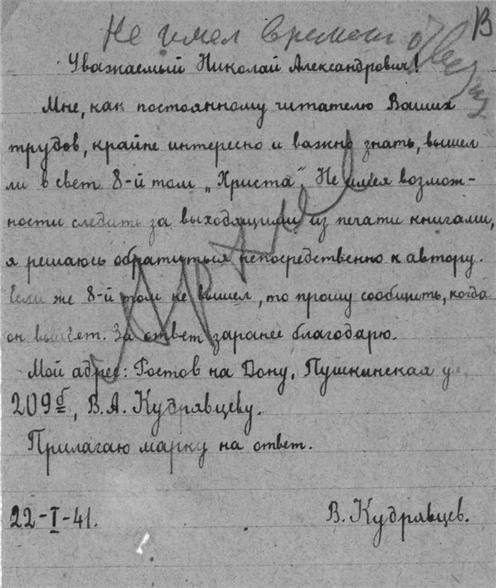 Не имел времени ответить
В
Уважаемый Николай Александрович!
Мне, как постоянному читателю Ваших
трудов, крайне интересно и важно знать, вышел
ли в свет 8-й том „Христа“. Не имея возмож-
ности следить за выходящими из печати книгами,
я решаюсь обратиться непосредственно к автору.
Если же 8-й том не вышел, то прошу сообщить, когда
он выйдет. За ответ заранее благодарю.
Мой адрес: Ростов на Дону, Пушкинская у
209б, В. А. Кудрявцеву.
Прилагаю марку на ответ.
22-I-41. В. Кудрявцев.